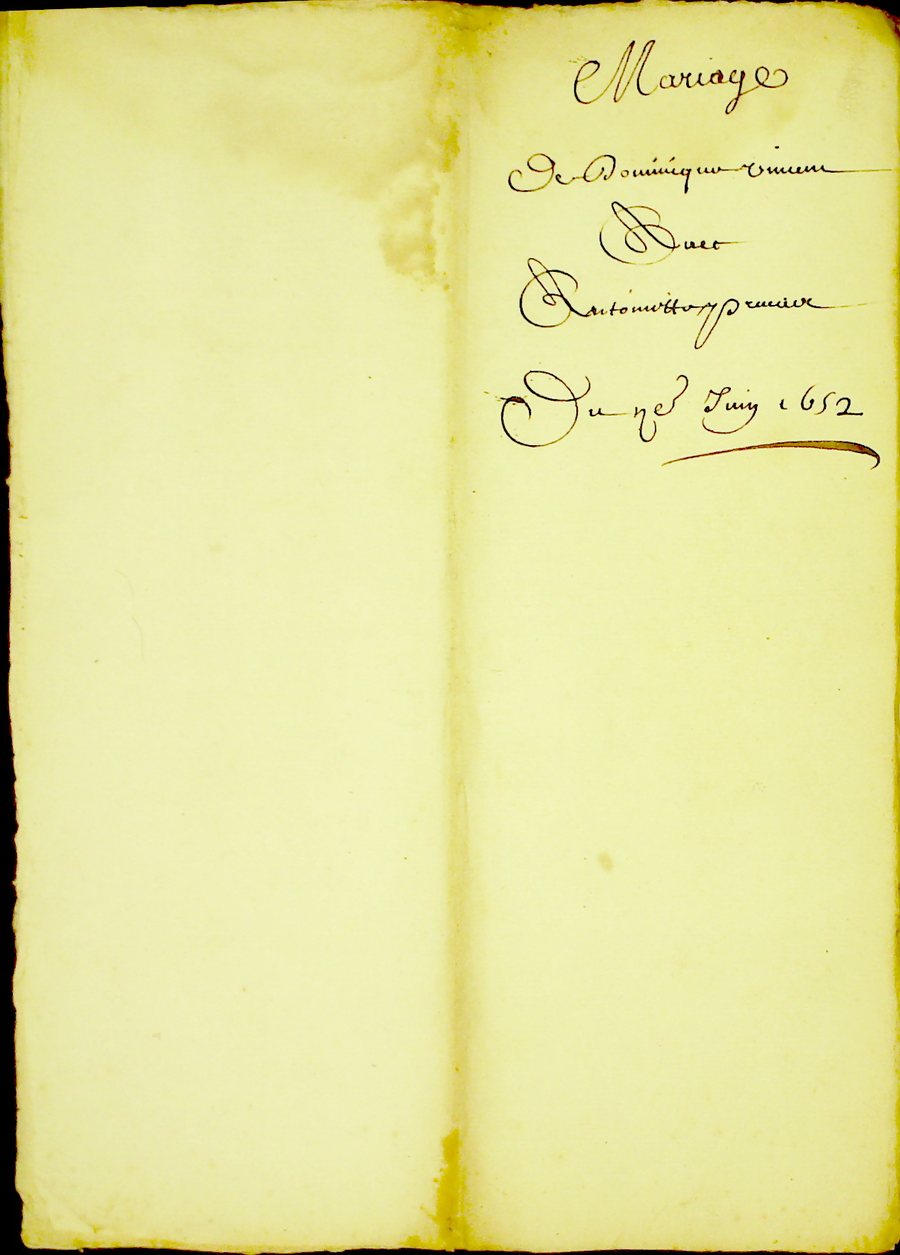 Mariage
De Dominique vincent
Avec
Anthoinette premier
Du Juin 1652